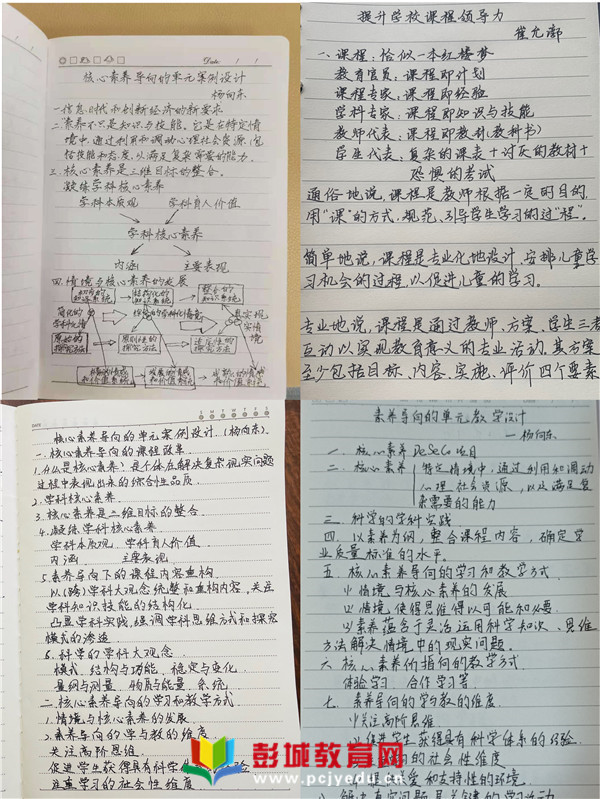 Date / /
核心素养导向的单元案例设计
杨向东
一.信息时代和创新经济的新要求
二.素养不只是知识与技能,它是在特定情
境中、通过利用和调动心理社会资源,包
括技能和态度,以满足复杂需要的能力。
三.核心素养是三维目标的整合。
凝练学科核心素养
学科本质观 学科育人价值
学科核心素养
内涵 主要表现
四.情境与核心素养的发展
结构化的
知识系统
整合的
知识系统
简化的
学科化情
真实现
实情境
原始的
探究方法
提升学校课程领导力
崔允漷
一、课程:恰似一本红楼梦
教育官员:课程即计划
课程专家:课程即经验
学科专家:课程即知识与技能
教师代表:课程即教材(教科书)
学生代表:复杂的课表+讨厌的教材+
恐惧的考试
通俗地说,课程是教师根据一定的目的,
用“课”的方式,规范、引导学生学习的过“程”。
简单地说,课程是专业化地设计、安排儿童学
习机会的过程,以促进儿童的学习。
专业地说,课程是通过教师、方案、学生三者
互动以实现教育意义的专业活动,其方案
至少包括目标、内容、实施、评价四个要素
DATE
核心素养导向的单元案例设计.(杨向东)
一.核心素养导向的课程改革
1.什么是核心素养?是个体在解决复杂现实问题
过程中表现出来的综合性品质.
2.学科核心素养.
3.核心素养是三维目标的整合
4.凝练学科核心素养
学科本质观. 学科育人价值
内涵 主要表现
5.素养导向下的课程内容重构.
以(跨)学科大观念统整和重构内容,关注
学科知识技能的结构化
凸显学科实践,强调学科思维方式和探究
模式的渗透
6.科学的学科大观念
模式、结构与功能、稳定与变化
量纲与测量、物质与能量、系统
二.核心素养导向的学习和教学方式
1.情境与核心素养的发展
2.素养导向的学与教的维度
关注高阶思维
促进学生获得具有科学体系的经验
注重学习的社会性维度
素养导向的单元教学设计
—杨向东
一. 核心素养DeSeCo项目
二. 核心素养 特定情境中,通过利用和调动
心理社会资源,以及满足复
杂需要的能力
三.科学的学科实践
四. 以素养为纲,整合课程内容,确定学
业质量标准的水平。
五. 核心素养导向的学习和教学方式
(1)情境与核心素养的发展
(2)情境使得思维得以可能和必要
(3)素养蕴含于灵活运用科学知识、思维
方法解决情境中的现实问题。
六. 核心素养价指向的教学方式
体验学习、合作学习等
七. 素养导向的学与教的维度
(1)关注高阶思维
(2)促进学生获得具有科学体系的经验
的社会性维度
和支持性的环境。
彭城教育网
www.pcjyedu.cn